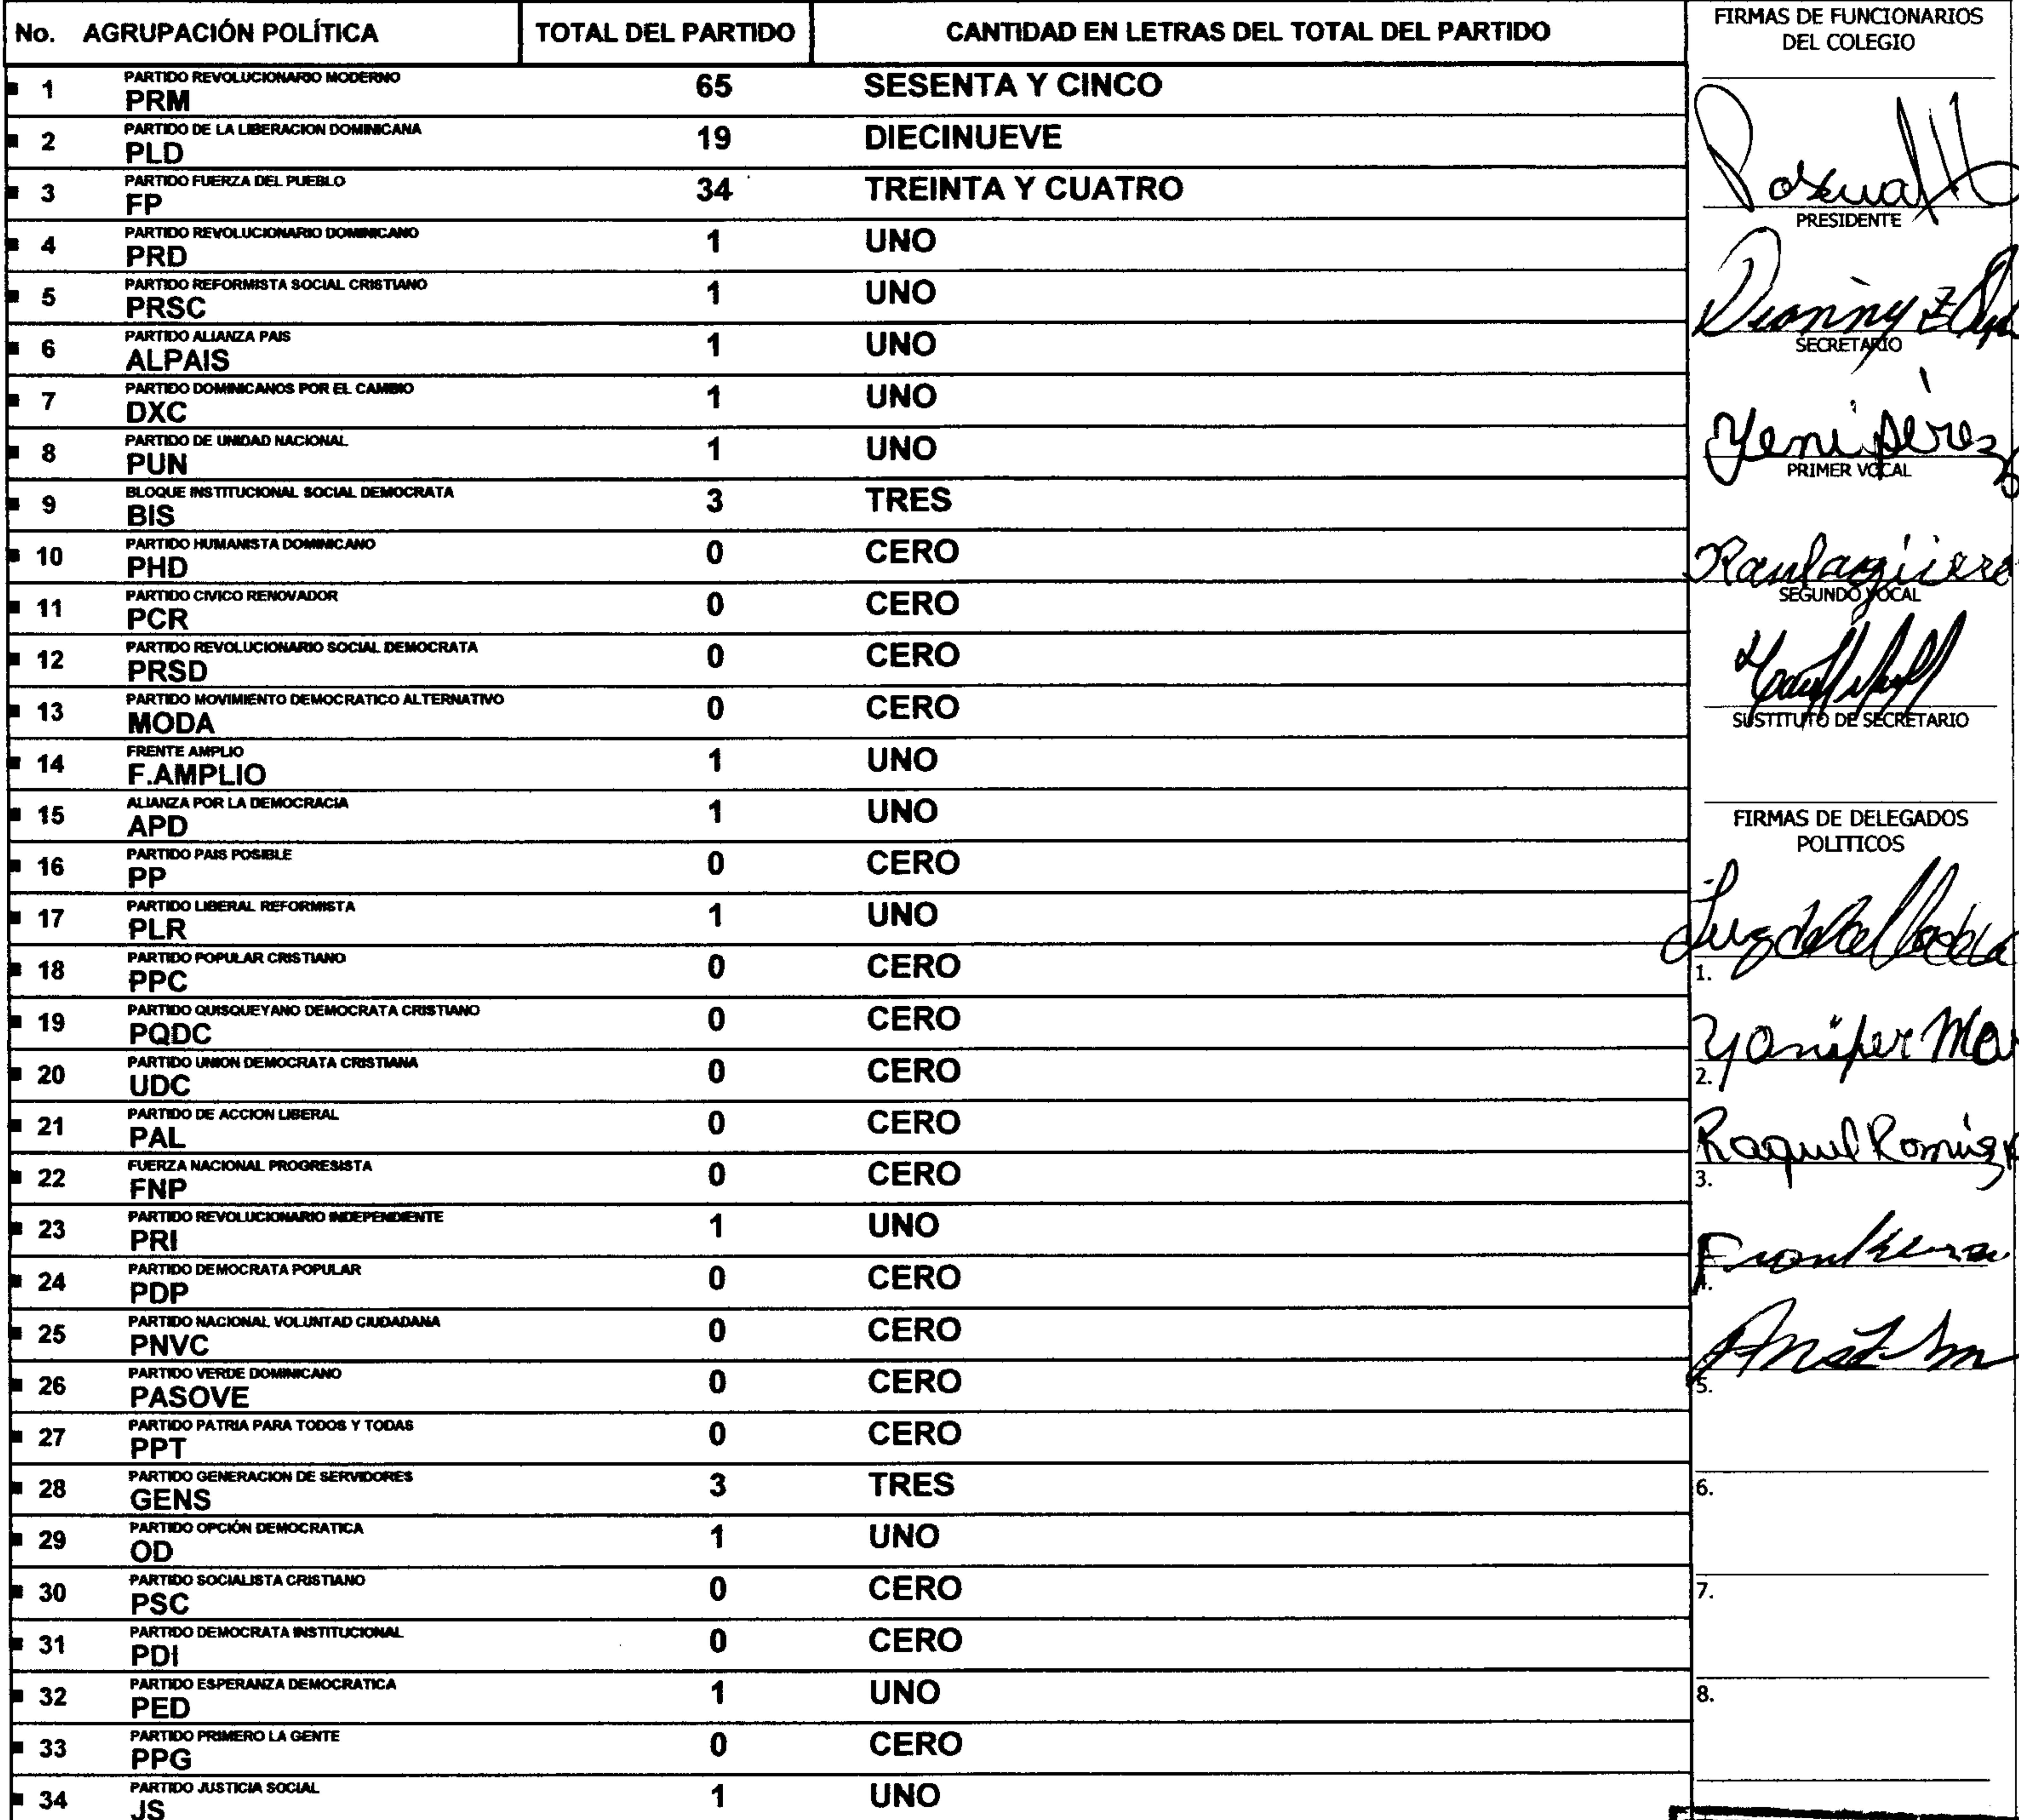 No. AGRUPACIÓN POLÍTICA TOTAL DEL PARTIDO CANTIDAD EN LETRAS DEL TOTAL DEL PARTIDO
PARTIDO REVOLUCIONARIO MODERNO
1 PRM 65 SESENTA Y CINCO
PARTIDO DE LA LIBERACION DOMINICANA
2 PLD 19 DIECINUEVE
PARTIDO FUERZA DEL PUEBLO
3 FP 34 TREINTA Y CUATRO
PARTIDO REVOLUCIONARIO DOMINICANO
4 PRD 1 UNO
PARTIDO REFORMISTA SOCIAL CRISTIANO
5 PRSC 1 UNO
PARTIDO ALIANZA PAIS
6 ALPAIS 1 UNO
PARTIDO DOMINICANOS POR EL CAMBIO
7 DXC 1 UNO
PARTIDO DE UNIDAD NACIONAL
8 PUN 1 UNO
BLOQUE INSTITUCIONAL SOCIAL DEMOCRATA
9 BIS 3 TRES
PARTIDO HUMANISTA DOMINICANO
10 PHD 0 CERO
PARTIDO CIVICO RENOVADOR
11 PCR 0 CERO
PARTIDO REVOLUCIONARIO SOCIAL DEMOCRATA
12 PRSD 0 CERO
PARTIDO MOVIMIENTO DEMOCRATICO ALTERNATIVO
13 MODA 0 CERO
FRENTE AMPLIO
14 F.AMPLIO 1 UNO
ALIANZA POR LA DEMOCRACIA
15 APD 1 UNO
PARTIDO PAIS POSIBLE
16 PP 0 CERO
PARTIDO LIBERAL REFORMISTA
17 PLR 1 UNO
PARTIDO POPULAR CRISTIANO
18 PPC 0 CERO
PARTIDO QUISQUEYANO DEMOCRATA CRISTIANO
19 PQDC 0 CERO
PARTIDO UNION DEMOCRATA CRISTIANA
20 UDC 0 CERO
PARTIDO DE ACCION LIBERAL
21 PAL 0 CERO
FUERZA NACIONAL PROGRESISTA
22 FNP 0 CERO
PARTIDO REVOLUCIONARIO INDEPENDIENTE
23 PRI 1 UNO
PARTIDO DEMOCRATA POPULAR
24 PDP 0 CERO
PARTIDO NACIONAL VOLUNTAD CIUDADANA
25 PNVC 0 CERO
PARTIDO VERDE DOMINICANO
26 PASOVE 0 CERO
PARTIDO PATRIA PARA TODOS Y TODAS
27 PPT 0 CERO
PARTIDO GENERACION DE SERVIDORES
28 GENS 3 TRES
PARTIDO OPCIÓN DEMOCRATICA
29 OD 1 UNO
PARTIDO SOCIALISTA CRISTIANO
30 PSC 0 CERO
PARTIDO DEMOCRATA INSTITUCIONAL
31 PDI 0 CERO
PARTIDO ESPERANZA DEMOCRATICA
32 PED 1 UNO
PARTIDO PRIMERO LA GENTE
33 PPG 0 CERO
PARTIDO JUSTICIA SOCIAL
34 JS 1 UNO
FIRMAS DE FUNCIONARIOS
DEL COLEGIO
PRESIDENTE
SECRETARIO
Yeni Pérez
PRIMER VOCAL
SEGUNDO VOCAL
SUSTITUTO DE SECRETARIO
FIRMAS DE DELEGADOS
POLITICOS
1.
Yanifer
2.
Raquel
3.
4.
5.
6.
7.
8.